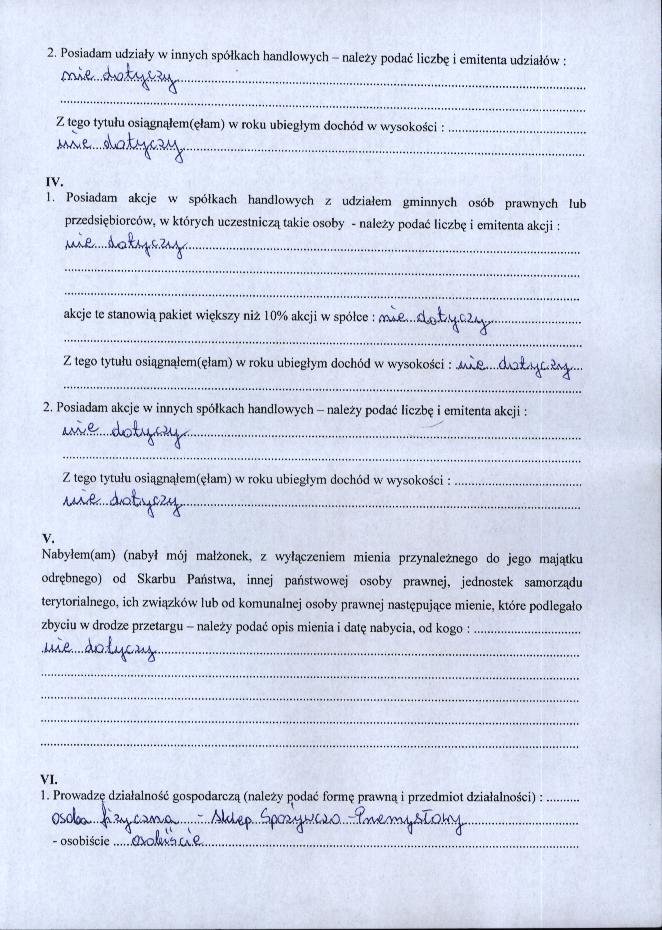 2. Posiadam udziały w innych spółkach handlowych – należy podać liczbę i emitenta udziałów :
nie dotyczy
Z tego tytułu osiągnąłem(ęłam) w roku ubiegłym dochód w wysokości :
nie dotyczy
IV.
1. Posiadam akcje w spółkach handlowych z udziałem gminnych osób prawnych lub
przedsiębiorców, w których uczestniczą takie osoby - należy podać liczbę i emitenta akcji :
nie dotyczy
akcje te stanowią pakiet większy niż 10% akcji w spółce : nie dotyczy
Z tego tytułu osiągnąłem(ęłam) w roku ubiegłym dochód w wysokości : nie dotyczy
2. Posiadam akcje w innych spółkach handlowych – należy podać liczbę i emitenta akcji :
nie dotyczy
Z tego tytułu osiągnąłem(ęłam) w roku ubiegłym dochód w wysokości :
nie dotyczy
V.
Nabyłem(am) (nabył mój małżonek, z wyłączeniem mienia przynależnego do jego majątku
odrębnego) od Skarbu Państwa, innej państwowej osoby prawnej, jednostek samorządu
terytorialnego, ich związków lub od komunalnej osoby prawnej następujące mienie, które podlegało
zbyciu w drodze przetargu – należy podać opis mienia i datę nabycia, od kogo :
nie dotyczy
VI.
1. Prowadzę działalność gospodarczą (należy podać formę prawną i przedmiot działalności) :
osoba fizyczna - Sklep Spożywczo-Przemysłowy
- osobiście osobiście